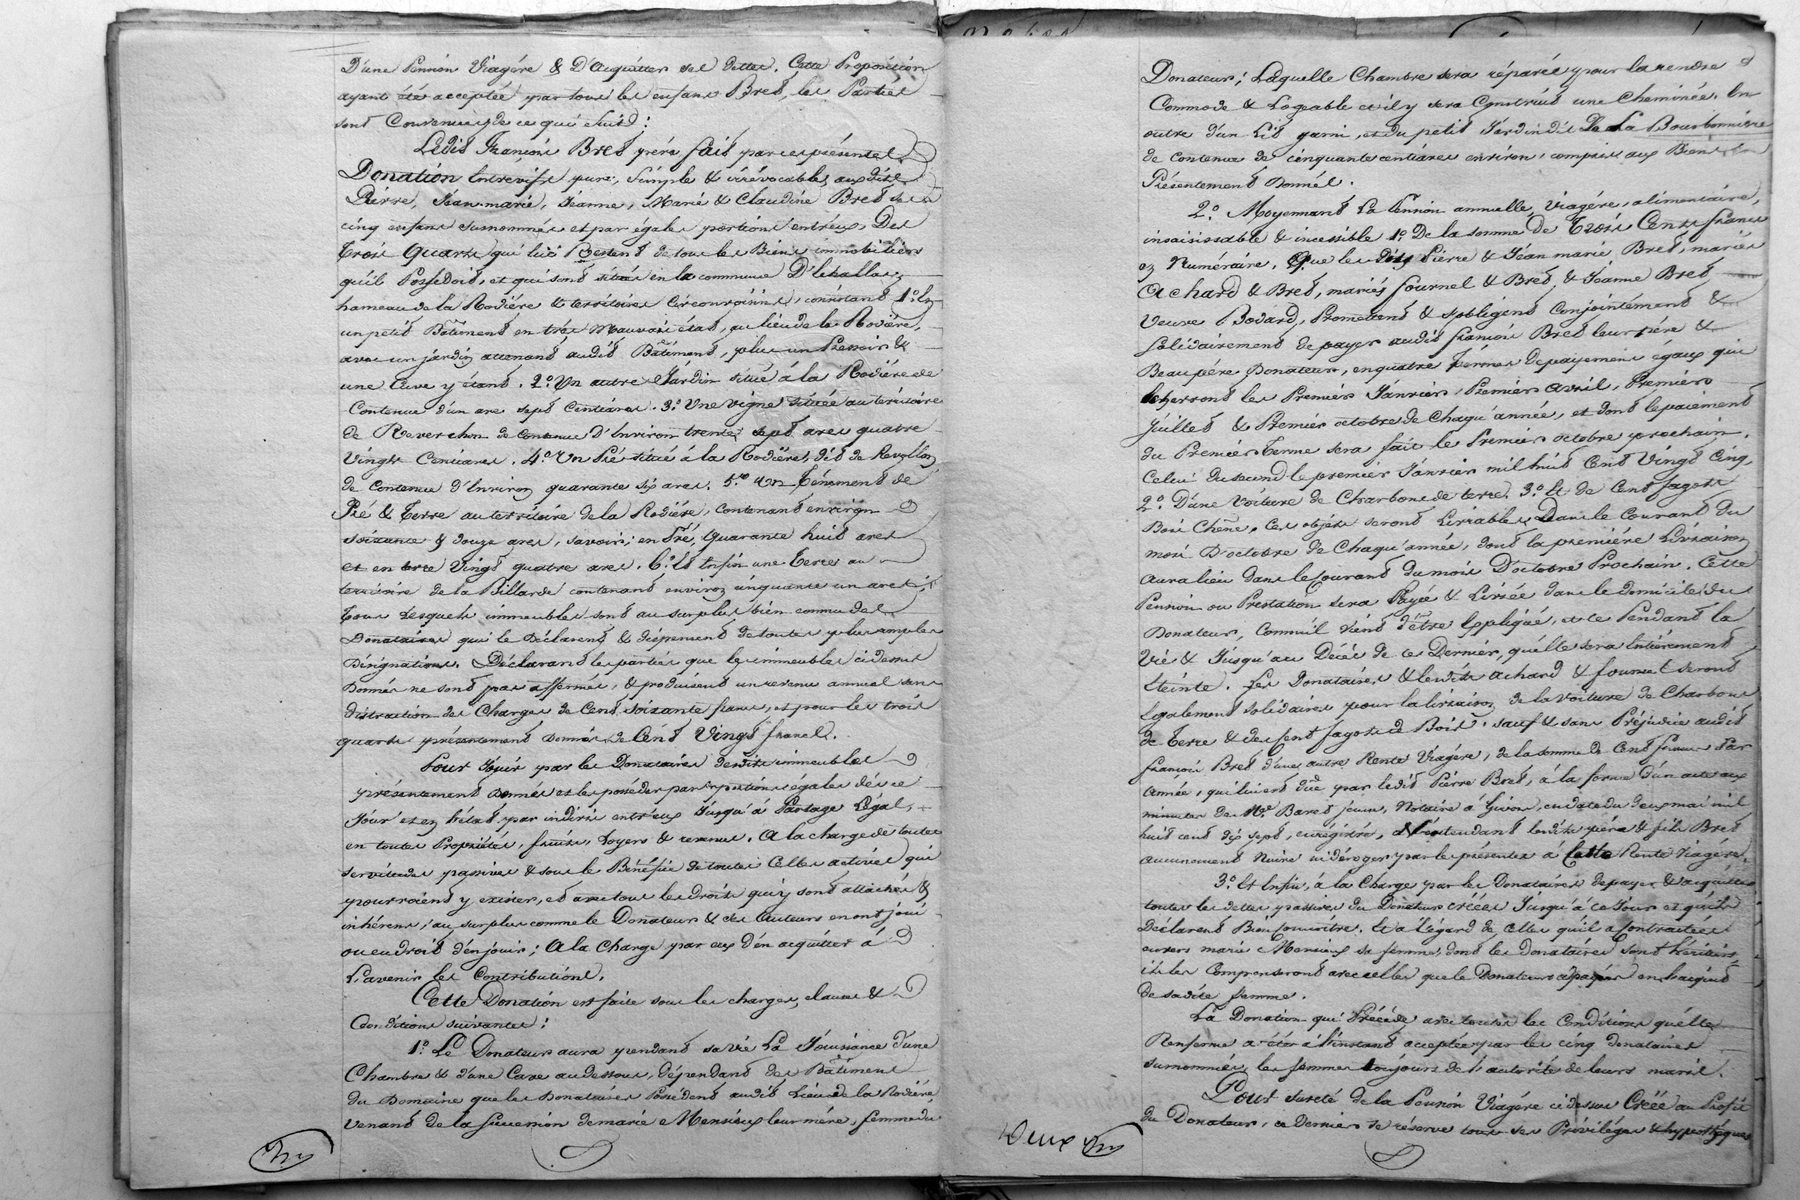 D'une Pension Viagére & D'acquitter ses dettes. Cette Proposition
ayant été acceptée par tous les enfans Bret, les Parties
sont Convenues de ce qui suit :
Ledit François Bret père fait par ces présentes
Donation entrevifs pure, simple & irrévocable, auxdits
Pierre, Jean-marie, Jeanne, Marie & Claudine Bret ses
cinq enfans susnommés et par égales portions entr'eux, Des
trois quarts qui lui Restent de tous les Biens immobiliers
qu'il Possedoit, et qui sont situés en la commune D'Echallas,
hameau de la Rodière & territoires circonvoisins, consistant 1.° En
un petit Batiment en très mauvais état, au lieu de la Rodière,
avec un jardin attenant audit Batiment, plus un Pressoir &
une Cuve y étant. 2.° Un autre Jardin situé à la Rodière de
Contenue d'un are sept Centiares. 3.° Une vigne située au territoire
de Reverchon de contenue d'Environ trente sept ares quatre
Vingts Centiares. 4.° Un Pré situé à la Rodière, dit de Revollon
de Contenue d'Environ quarante six ares. 5.° Un Ténement de
Pré & Terre au territoire de la Rodière, contenant environ
soixante & douze ares, savoir; en Pré, Quarante huit ares
et en terre Vingt quatre ares. 6.° Et Enfin une Terre au
territoire de la Billarde contenant environ cinquante un ares;
tous lesquels immeubles sont au surplus bien connus des
Donataires qui le Déclarent & dispensent de toutes plus amples
Désignations. Déclarant les parties que les immeubles ci dessus
Donnés ne sont pas affermés, & produisent un revenu annuel sans
distraction des Charges de Cent soixante francs, et pour les trois
quarts présentement donnés de Cent Vingt francs.
Pour Jouir par les Donataires desdits immeubles
présentement donnés et les posséder par portions égales dès ce
Jour et en l'état par indivis entr'eux Jusqu'à Partage Légal,
en toutes Propriétés, fruits, Loyers & revenus. A la charge de toutes
servitudes passives & sous le Bénéfice de toutes Celles actives qui
pourroient y exister, et avec tous les droits qui y sont attachés &
inhérens; au surplus comme le Donateur & ses Auteurs en ont joui
ou eu droit d'en jouir; A la Charge par eux d'en acquitter à
L'avenir les Contributions.
Cette Donation est faite sous les charges, clauses &
Conditions suivantes :
1.° Le Donateur aura pendant sa vie La Jouissance d'une
Chambre & d'une Cave au dessous, dépendant des Bâtiment
du Domaine que les Donataires Possedent audit Lieu de la Rodière
venant de la succession de marie Monsieux leur mère, femme du
Donateur; Laquelle Chambre sera réparée pour la rendre
Commode & Logeable et il y sera Construit une Cheminée. En
outre d'un Lit garni, et du petit Jardin dit De La Bourbonnière
de contenue de cinquante centiares environ, compris aux Biens
Présentement Donnés.
2.° Moyennant La Pension annuelle, Viagére, alimentaire,
insaisissable & incessible 1.° De la somme de Trois Cents francs
en Numéraire, Que lesdits Pierre & Jean marie Bret, mariés
Achard & Bret, mariés fournel & Bret, & Jeanne Bret
Veuve Bodard, Promettent & s'obligent Conjointement &
Solidairement de payer audit françois Bret leur père &
Beaupère Donateur, en quatre Termes de payement égaux qui
écherront les Premier Janvier, Premier avril, Premier
Juillet & Premier octobre de Chaqu'année, et dont le paiement
du Premier Terme sera fait le Premier octobre prochain.
Celui du second le premier Janvier mil huit Cent Vingt Cinq
2.° D'une Voiture de Charbons de terre. 3.° Et de Cent fagots
Bois Chêne. Ces objets seront Livrables Dans le Courant du
mois D'octobre de Chaqu'année, dont la première Livraison
aura lieu dans le Courant du mois D'octobre Prochain. Cette
Pension ou Prestation sera Payée & Livrée dans le domicile du
Donateur, Comm'il vient d'être Expliqué, et ce Pendant la
Vie & Jusqu'au Décès de ce Dernier, qu'elle sera Entièrement
éteinte. Les Donataires & lesdits achard & fournel seront
Egalement solidaires pour la livraison de la voiture de Charbons
de Terre & des Cent fagots de Bois. sauf & sans Préjudice audit
françois Bret d'une autre Rente Viagére, de la somme de Cent francs Par
année, qui lui est dûe par ledit Pierre Bret, à la forme d'un acte aux
minutes de M.e Baret jeune, Notaire à Givors, en date du deux mai mil
huit cent dix sept, enregistré, N'entendant lesdits père & fils Bret
aucunement Nuire ni déroger par les présentes à Cette Rente Viagére.
3.° Et Enfin, à la Charge par les Donataires de payer & acquitter
toutes les dettes passives du Donateur créées Jusqu'à ce Jour et qu'ils
Déclarent Bien Connoitre. Et à l'égard de Celles qu'il a contractées
envers marie Monsieux sa femme, dont les Donataires sont héritiers,
ils les Comprenront avec celles que le Donateur a à payer en l'acquit
de sadite femme.
La Donation qui Précéde avec toutes les Conditions qu'elle
Renferme a été à l'instant acceptée par les cinq donataires
susnommés, les femmes toujours de l'autorité de leurs maris.
Pour sureté de la Pension Viagére ci dessus Créée au Profit
du Donateur, ce Dernier se réserve tous ses Privilèges & hypothéques
Deux